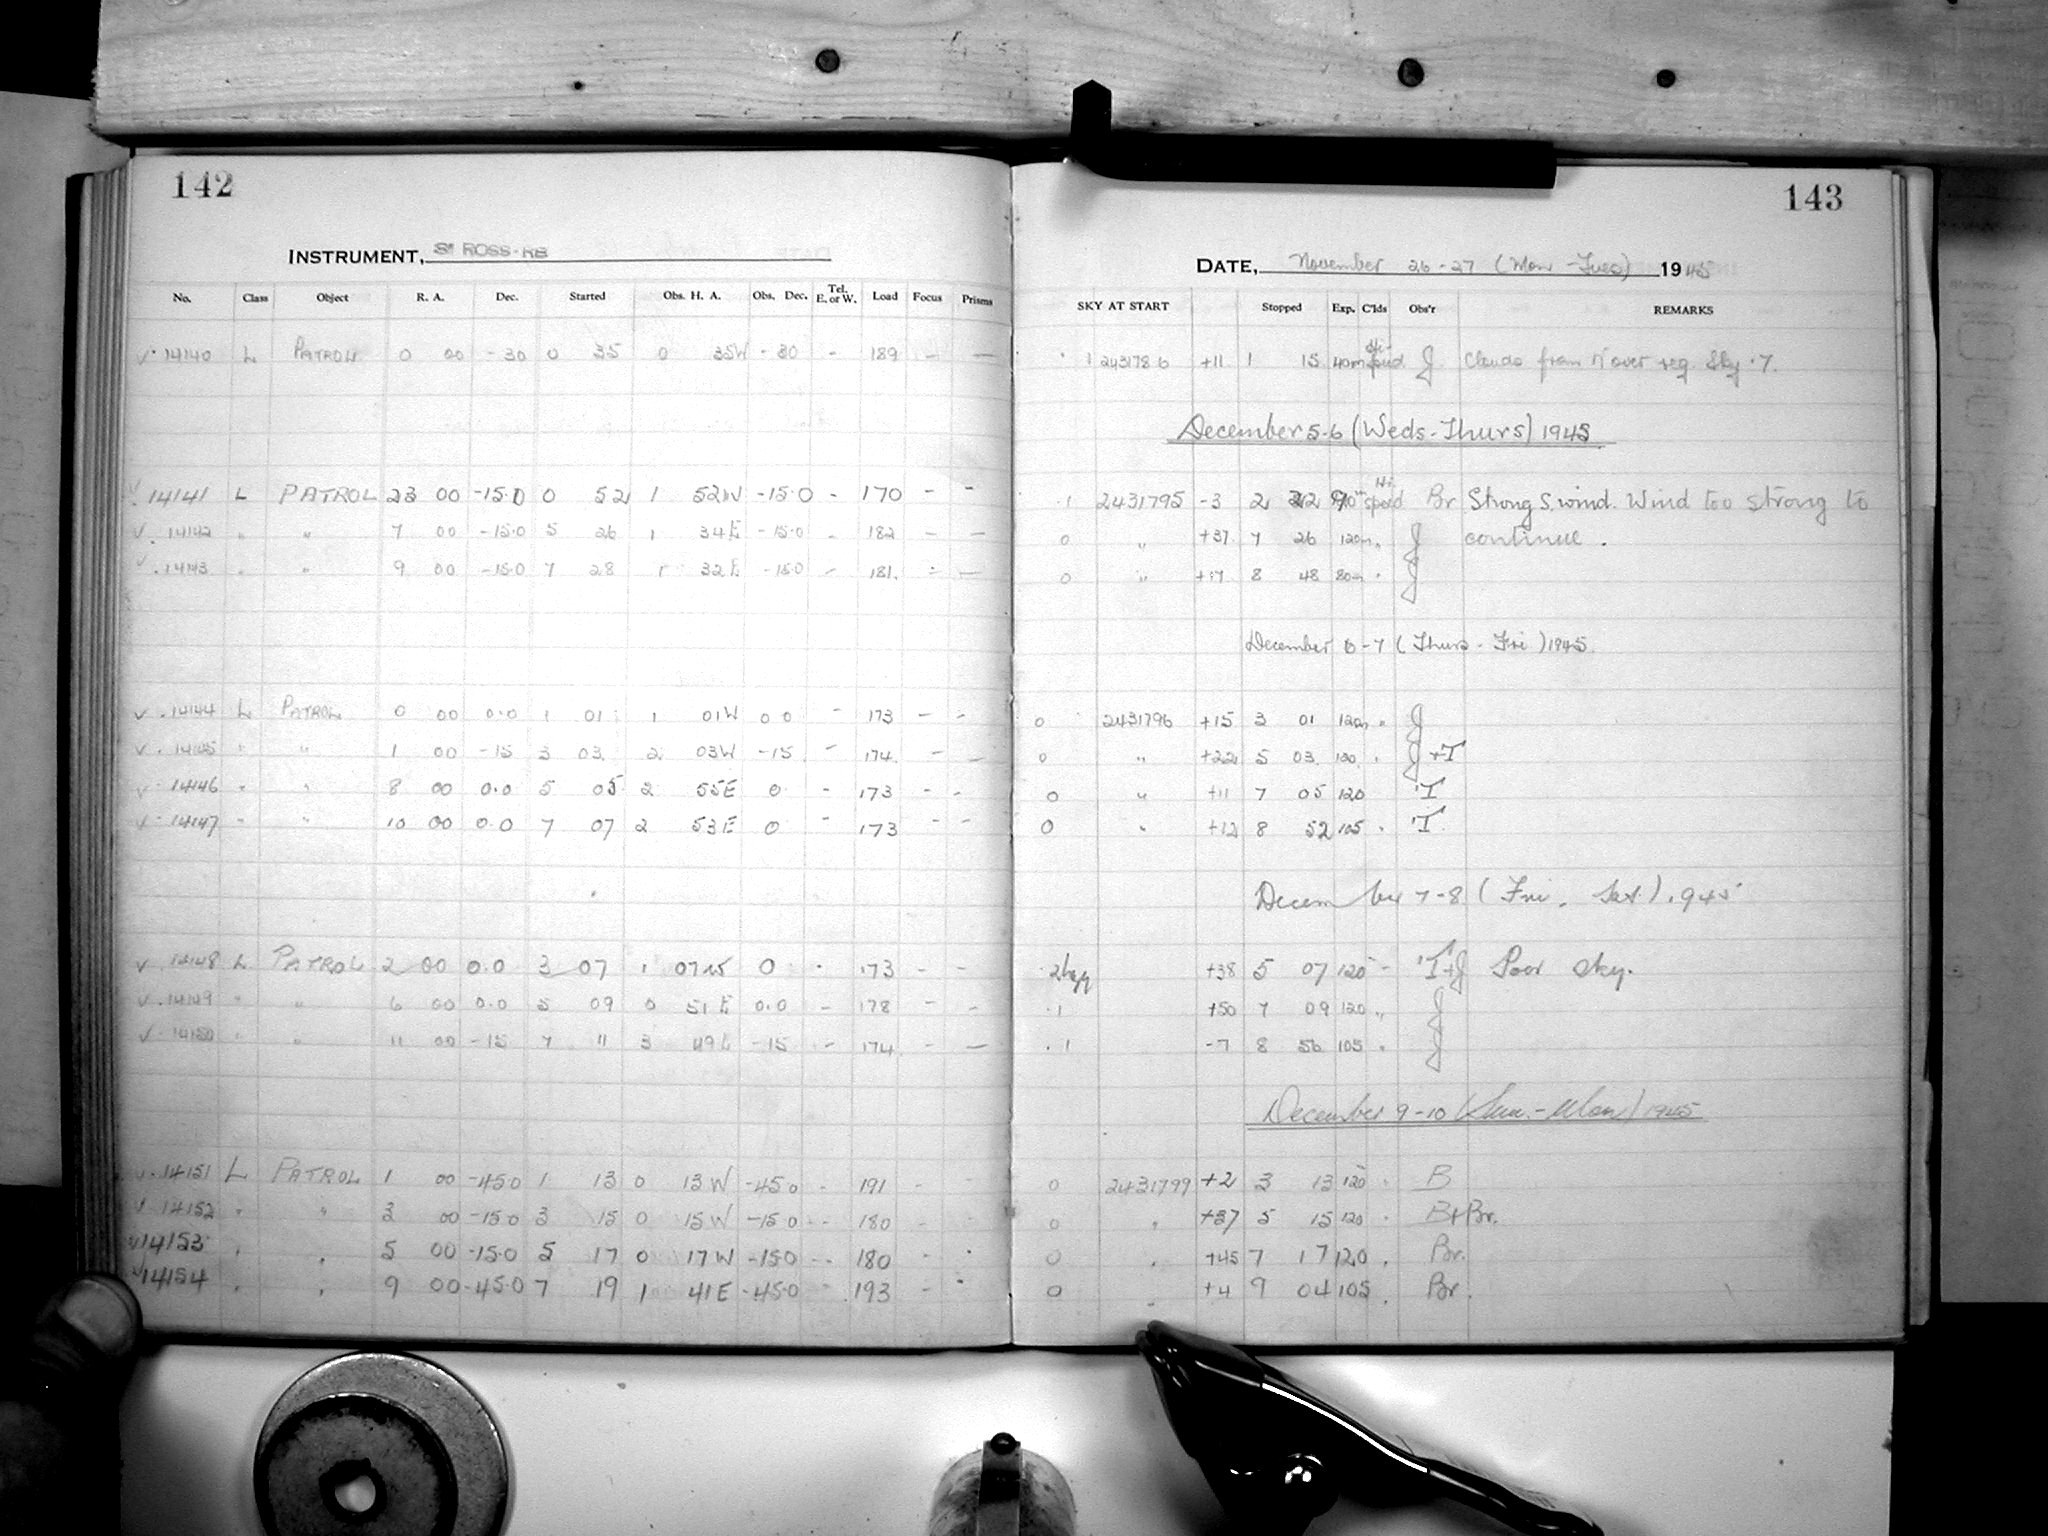 142
INSTRUMENT, ROSS-RB
No. Class Object R. A. Dec. Started Obs. H. A. Obs. Dec. Tel. E. or W. Load Focus Prisms
✓ 14140 L PATROL 0 00 -30 0 35 0 35W -30 - 189 - -
✓ 14141 L PATROL 23 00 -15.0 0 52 1 52W -15.0 - 170 - -
✓ 14142 " " 7 00 -15.0 5 26 1 34E -15.0 - 182 - -
✓ 14143 " " 9 00 -15.0 7 28 1 32E -15.0 - 181 - -
✓ 14144 L PATROL 0 00 0.0 1 01 1 01W 0 0 - 173 - -
✓ 14145 " " 1 00 -15 3 03 2 03W -15 - 174 - -
✓ 14146 " " 8 00 0.0 5 05 2 55E 0 - 173 - -
✓ 14147 " " 10 00 0.0 7 07 2 53E 0 - 173 - -
✓ 14148 L PATROL 2 00 0.0 3 07 1 07W 0 - 173 - -
✓ 14149 " " 6 00 0.0 5 09 0 51E 0.0 - 178 - -
✓ 14150 " " 11 00 -15 7 11 3 49E -15 - 174 - -
✓ 14151 L PATROL 1 00 -45.0 1 13 0 13W -45.0 - 191 - -
✓ 14152 " " 3 00 -15.0 3 15 0 15W -15.0 - 180 - -
✓ 14153 " " 5 00 -15.0 5 17 0 17W -15.0 - 180 - -
✓ 14154 " " 9 00 -45.0 7 19 1 41E -45.0 - 193 - -
143
DATE, November 26-27 (Mon-Tues) 1945
SKY AT START Stopped Exp. C'lds Obs'r REMARKS
.1 2431786 +11 1 15 40m Hi-speed J Clouds from N over reg. Sky .7.
December 5-6 (Weds-Thurs) 1945
.1 2431795 -3 2 22 90m Hi. speed Br Strong S. wind. Wind too strong to
0 " +37 7 26 120m " J continue.
0 " +17 8 48 80m " J
December 6-7 (Thurs-Fri) 1945
0 2431796 +15 3 01 120m " J
0 " +22 5 03 120 " J+T
0 " +11 7 05 120 T
0 " +12 8 52 105 " T
December 7-8 (Fri. Sat.) 1945
.2 hzy +38 5 07 120 - T+J Poor Sky.
.1 +50 7 09 120 " J
.1 -7 8 56 105 " J
December 9-10 (Sun.-Mon) 1945
0 2431799 +2 3 13 120 " B
0 " +37 5 15 120 " B+Br.
0 " +45 7 17 120 " Br.
0 " +4 9 04 105 " Br.